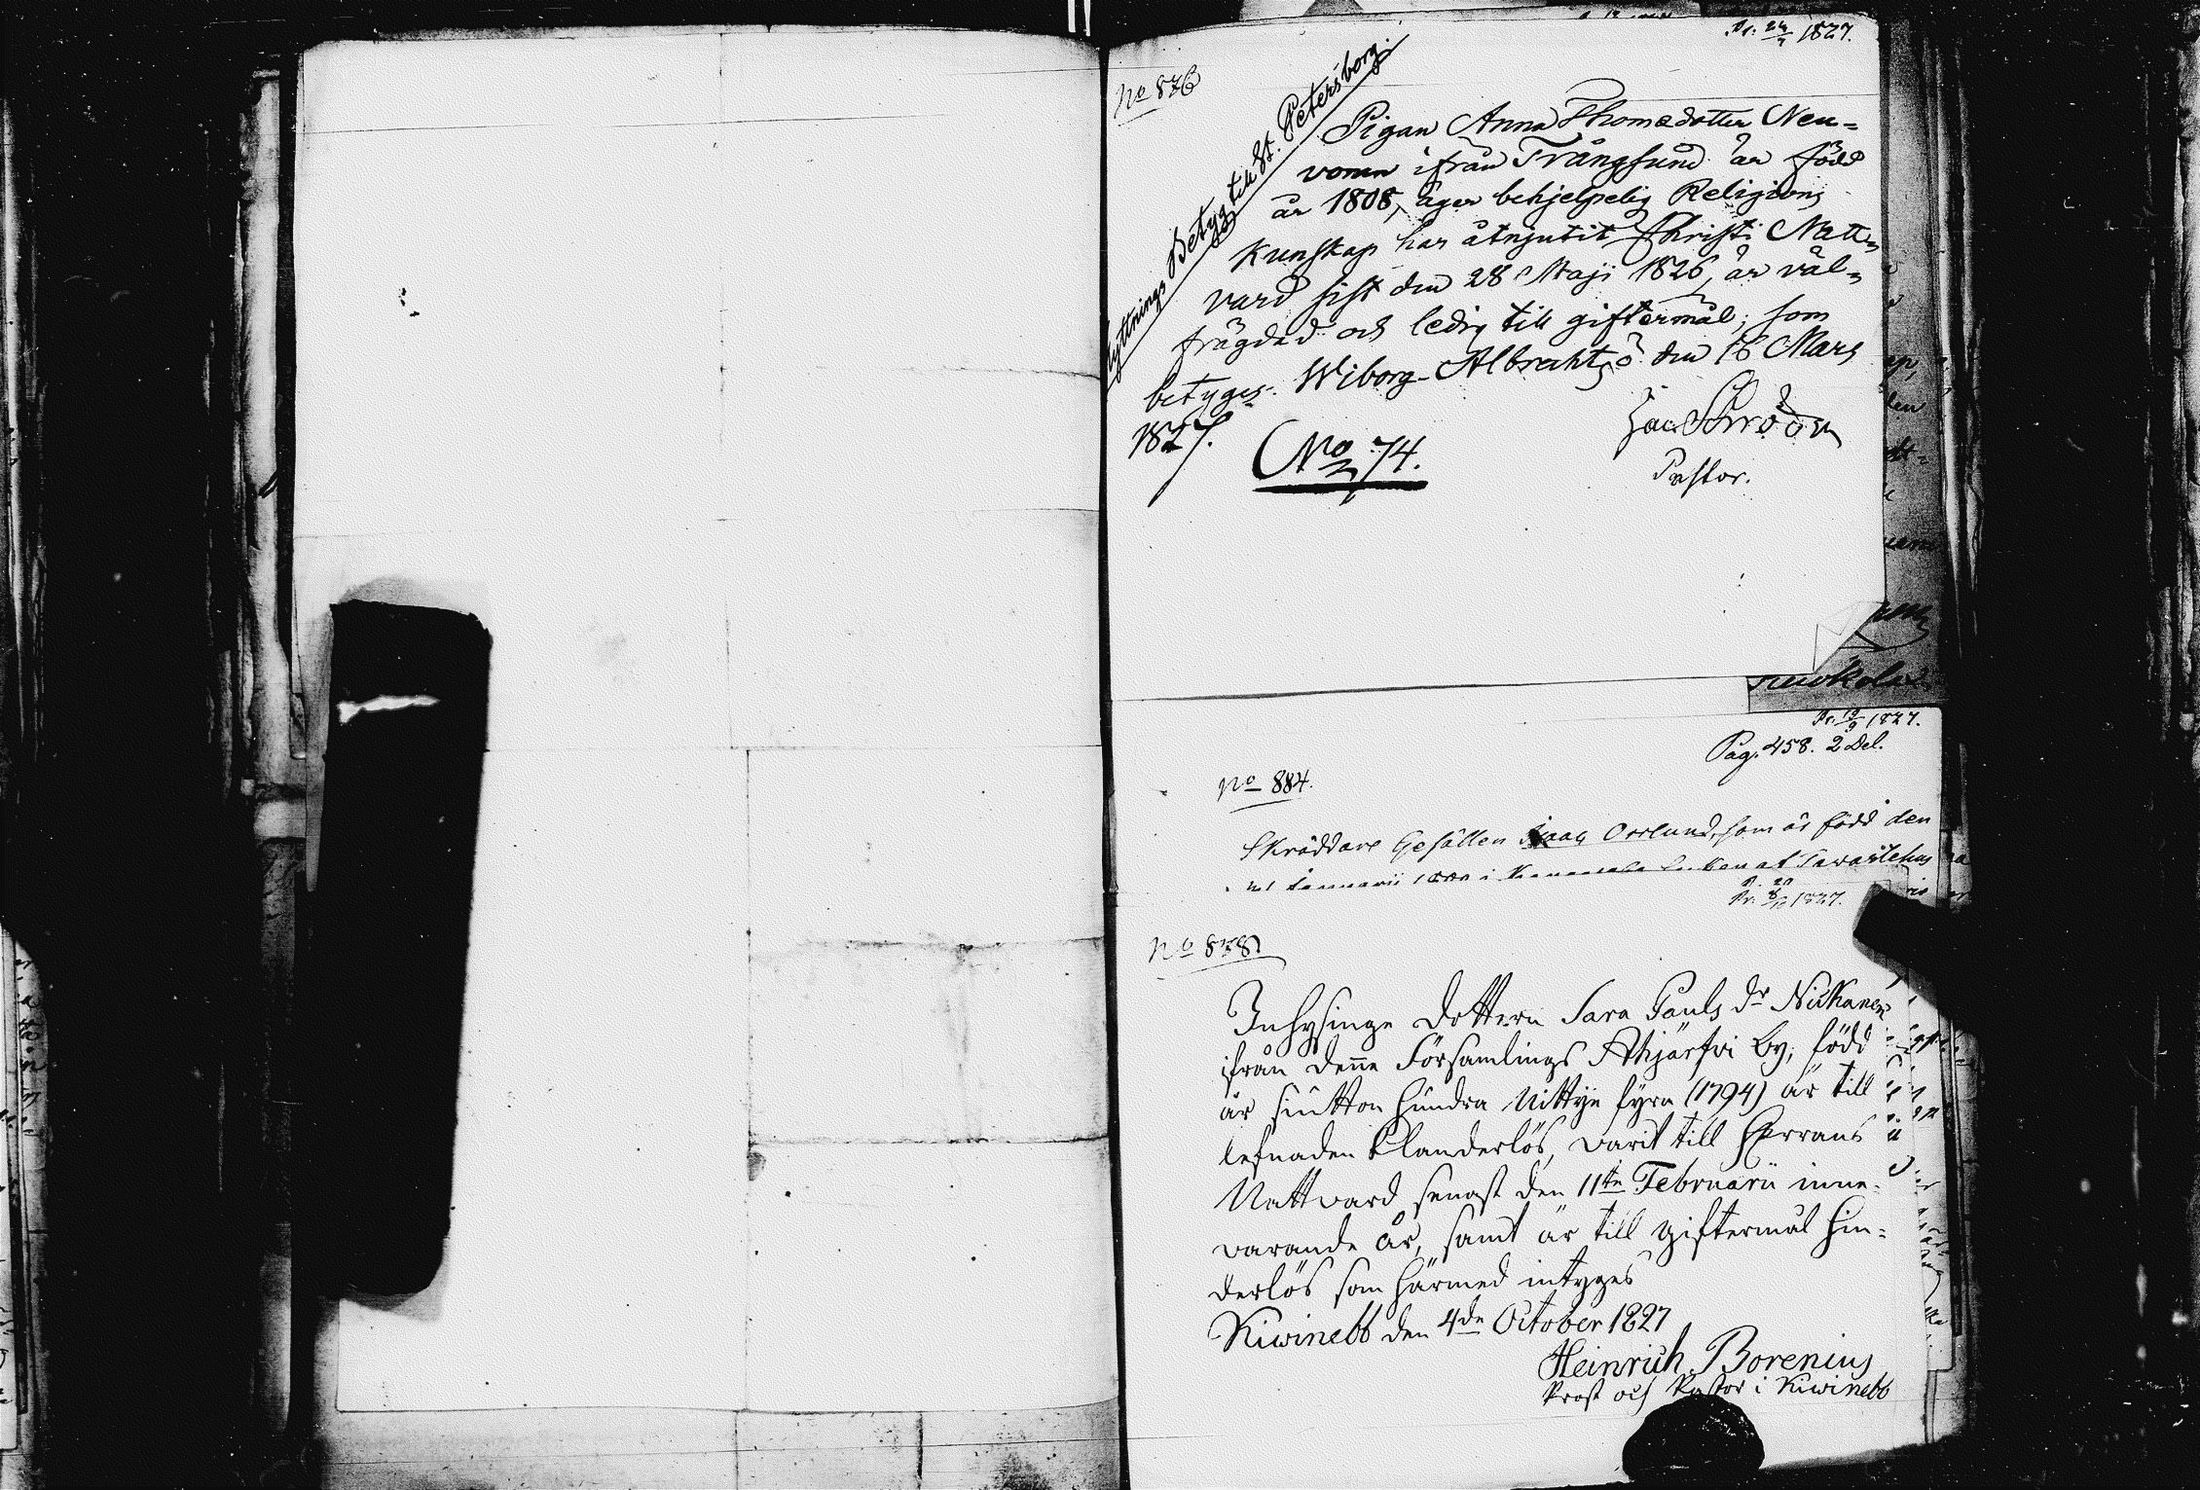 Pr. 24/9 1827.
No 876
Flyttnings Betyg till St. Petersborg.
Pigan Anna Thomædotter Neu=
vonen ifrån Trångsund är född
år 1808, äger behjelpelig Religions
Kunskap har åtnjutit Christi Natt=
vard sist den 28 Maji 1826, är väl=
frägdad och ledig till giftermål; som
betyges. Wiborg-Albrechtsö den 16 Mars
1827.
No 74.
Jac Schröder
Pastor.
Pr. 19/9 1827.
Pag. 458. 2 Del.
No 884.
Skräddare Gesällen Isaac Osslund, som är född den
Januarii i Tawastehus
1827.
No 878
Inhysinge Dottren Sara Pauls dr Nickanen
ifrån denne Församlings Ahijärfvi by, född
år siutton hundra Nittije fyra (1794) är till
lefnaden klanderlös, varit till Herrans
Nattvard senast den 11te Februarii inne-
varande år, samt är till giftermål hin=
derlös som härmed intyges
Kiwinebb den 4de October 1827
Heinrich Borenius
Prost och Pastor i Kiwinebb